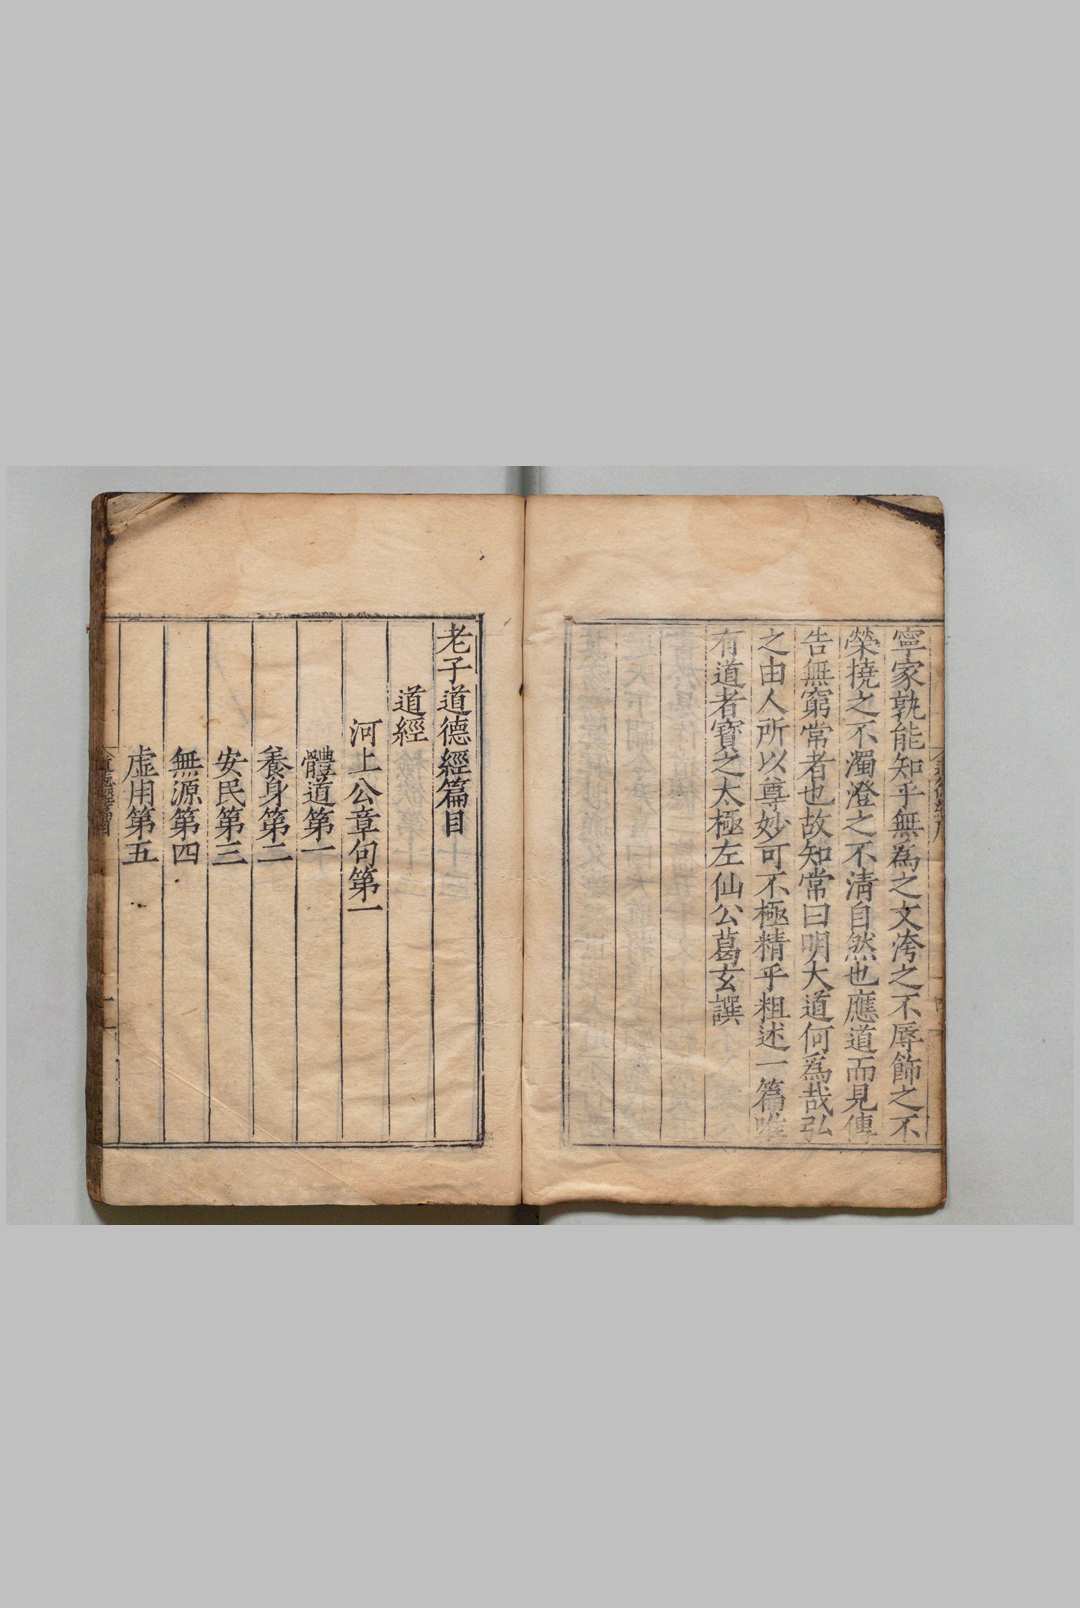 寧家孰能知乎無為之文洿之不辱飾之不
榮撓之不濁澄之不清自然也應道而見傳
告無窮常者也故知常曰明大道何為哉弘
之由人所以尊妙可不極精乎粗述一篇唯
有道者寶之太極左仙公葛玄譔
老子道德經篇目
道經
河上公章句第一
體道第一
養身第二
安民第三
無源第四
虛用第五